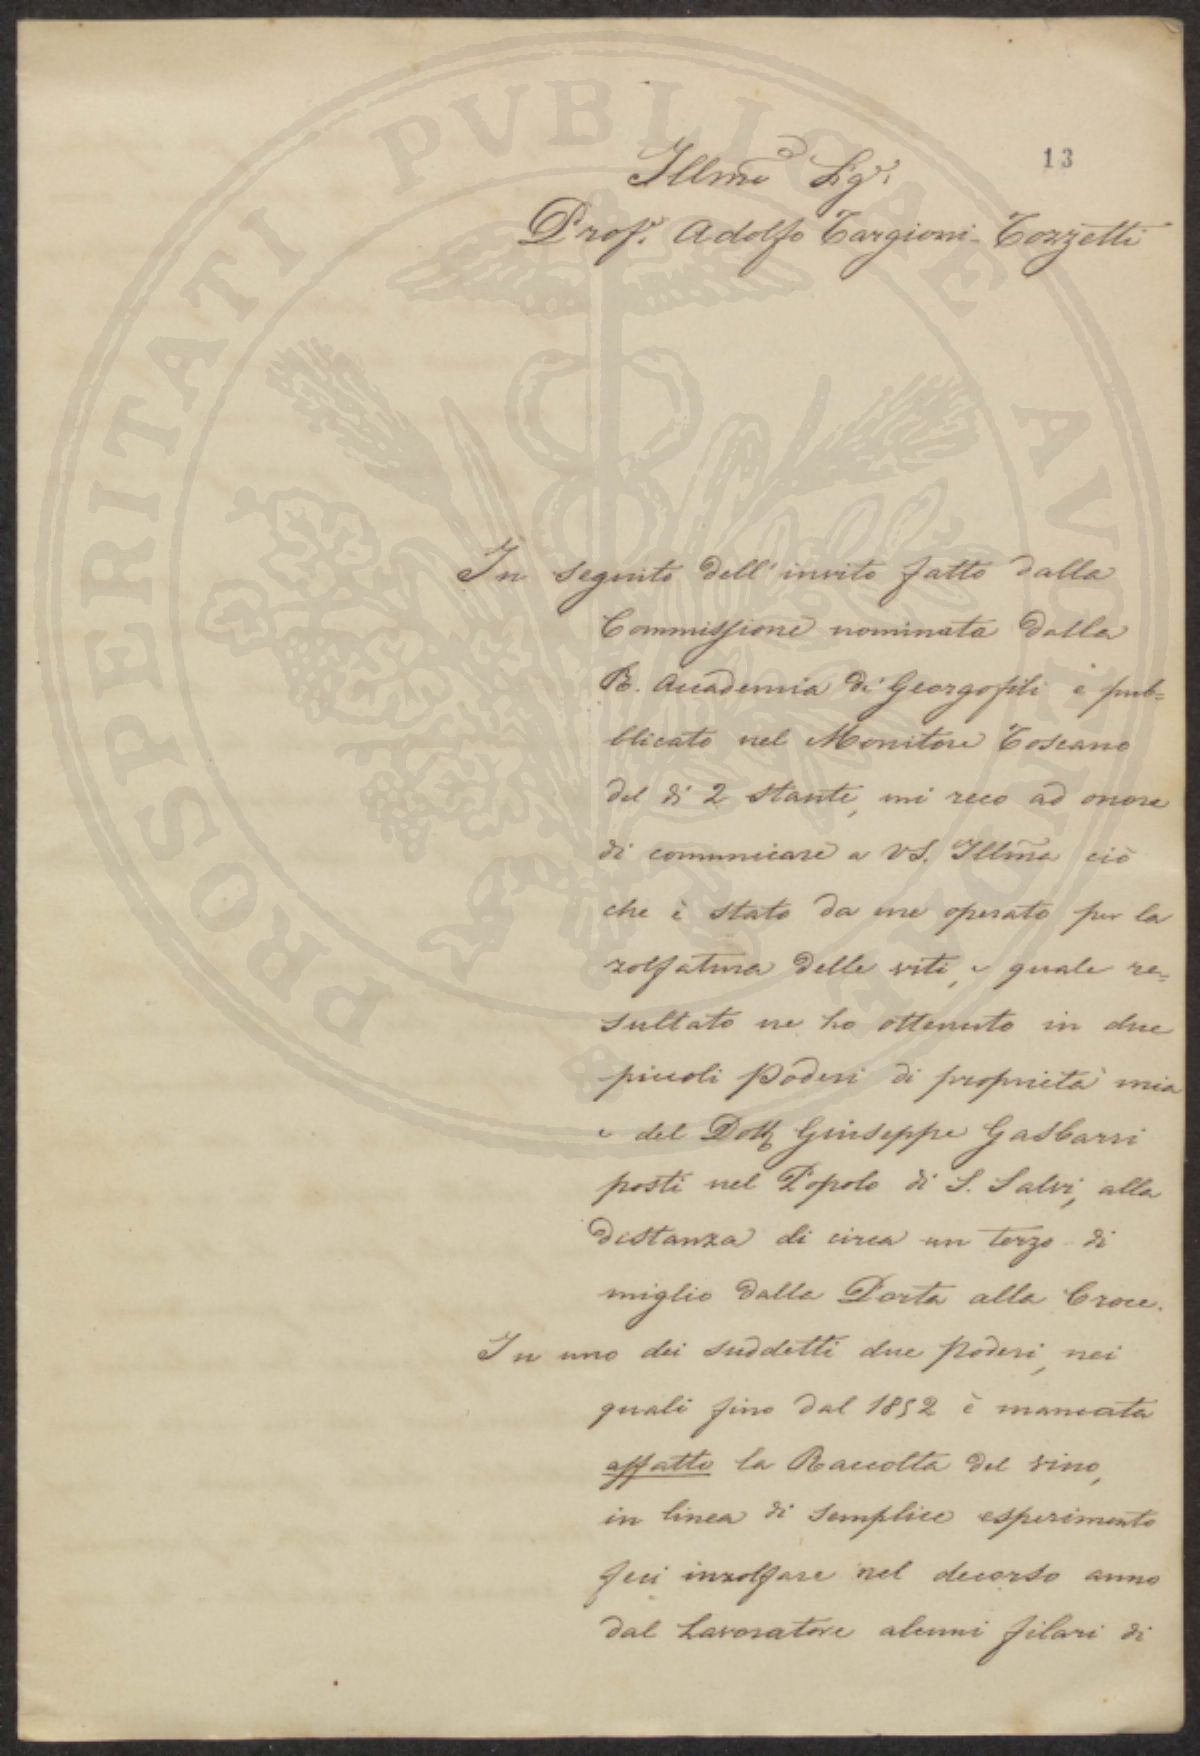 13
Illmo Sigr.
Profr. Adolfo Targioni-Tozzetti
In seguito dell'invito fatto dalla
Commissione nominata dalla
R. Accademia di Georgofili e pub=
blicato nel Monitore Toscano
del dì 2 stante, mi reco ad onore
di comunicare a VS. Illma ciò
che è stato da me operato per la
zolfatura delle viti, e quale re=
sultato ne ho ottenuto in due
piccoli Poderi di proprietà mia
e del Dott Giuseppe Gasbarri
posti nel Popolo di S. Salvi, alla
distanza di circa un terzo di
miglio dalla Porta alla Croce.
In uno dei suddetti due Poderi, nei
quali fino dal 1852 è mancata
affatto la Raccolta del vino,
in linea di semplice esperimento
feci inzolfare nel decorso anno
dal Lavoratore alcuni filari di
PROSPERITATI PVBLICAE AVGENDAE